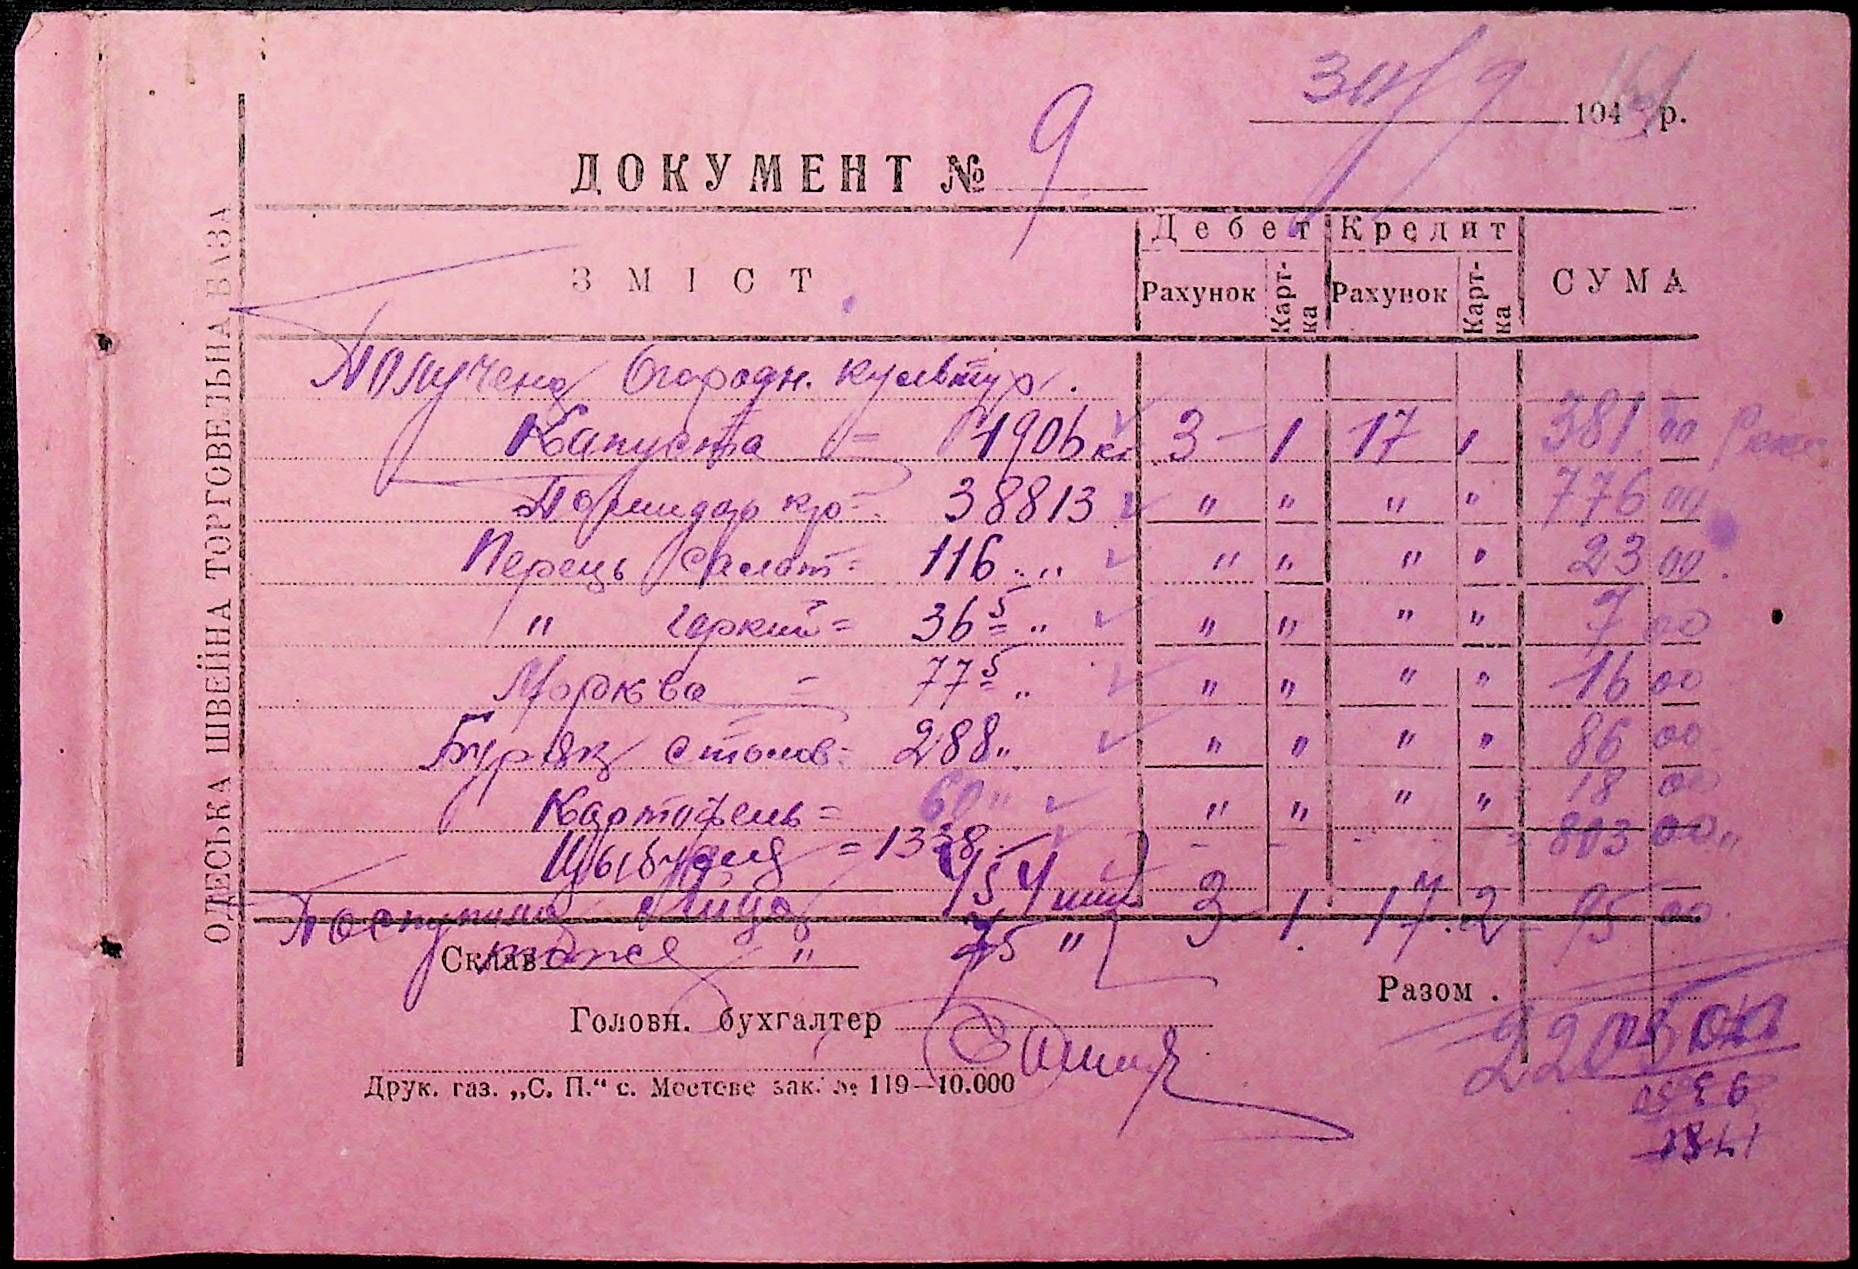 30/9 194 р.
ДОКУМЕНТ № 9
ОДЕСЬКА ШВЕЙНА ТОРГОВЕЛЬНА БАЗА
ЗМІСТ Дебет Кредит СУМА
Рахунок Карт-ка Рахунок Карт-ка
Получено Огородн. культур.
Капуста = 1906 кг 3 - 1 17 1 381 00
Помидор кр = 38813 " " " " 776 00
Перець салат = 116 " " " " " 23 00
" горкий = 36 5 " " " " " 7 00
Морква = 77 5 " " " " " 16 00
Буряк столов = 288 " " " " " 86 00
Картофель = 60 " " " " " 18 00
Цыбуля = 1338 - - - - 803 00
Поступило Яйца 454 шт 3 1 17 2 95 00
Склав также " 75 "
Разом . 2205 00
Головн. бухгалтер
Друк. газ. „С. П.“ с. Мостове зак. № 119—10.000